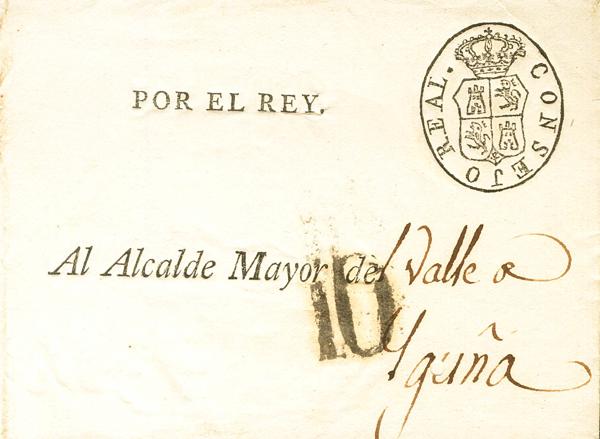 CONSEJO REAL.
POR EL REY.
Al Alcalde Mayor del Valle de
Yguña
10